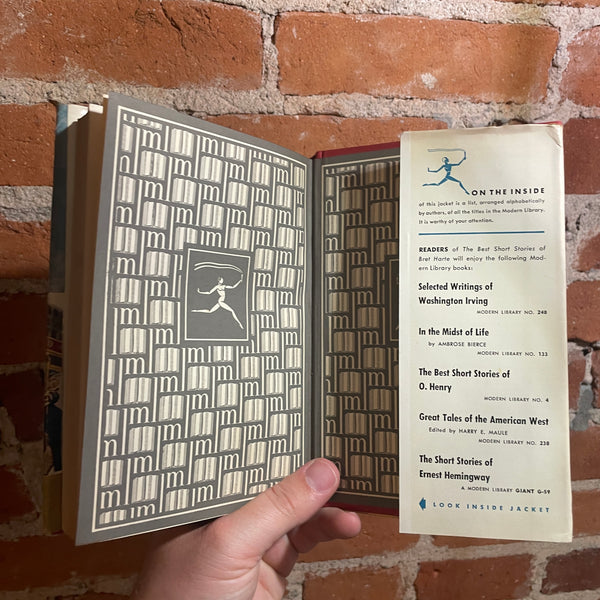 ON THE INSIDE
of this jacket is a list, arranged alphabetically
by authors, of all the titles in the Modern Library.
It is worthy of your attention.
READERS of The Best Short Stories of
Bret Harte will enjoy the following Mod-
ern Library books:
Selected Writings of
Washington Irving
MODERN LIBRARY NO. 248
In the Midst of Life
by AMBROSE BIERCE
MODERN LIBRARY NO. 133
The Best Short Stories of
O. Henry
MODERN LIBRARY NO. 4
Great Tales of the American West
Edited by HARRY E. MAULE
MODERN LIBRARY NO. 238
The Short Stories of
Ernest Hemingway
A MODERN LIBRARY GIANT G-59
LOOK INSIDE JACKET